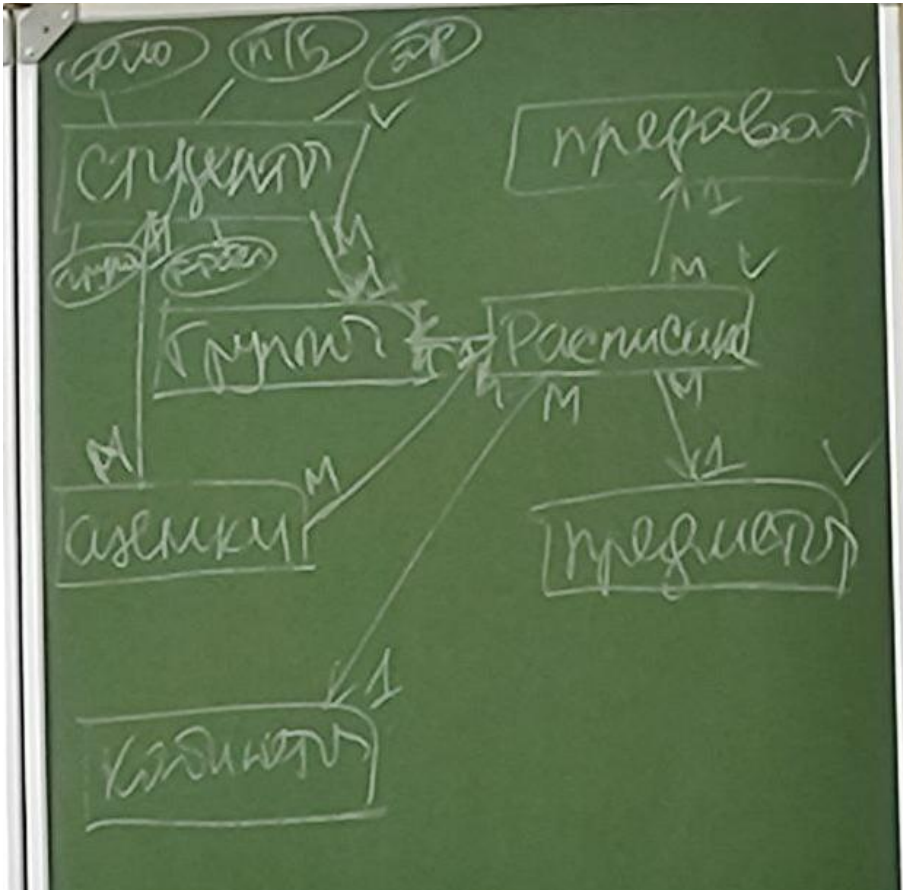 ФИО
П/Б
ДР
V
Студенты
V
преподават
М
1
1
М
V
группы
Расписани
М
М
М
М
1
V
оценки
предметы
1
кабинеты